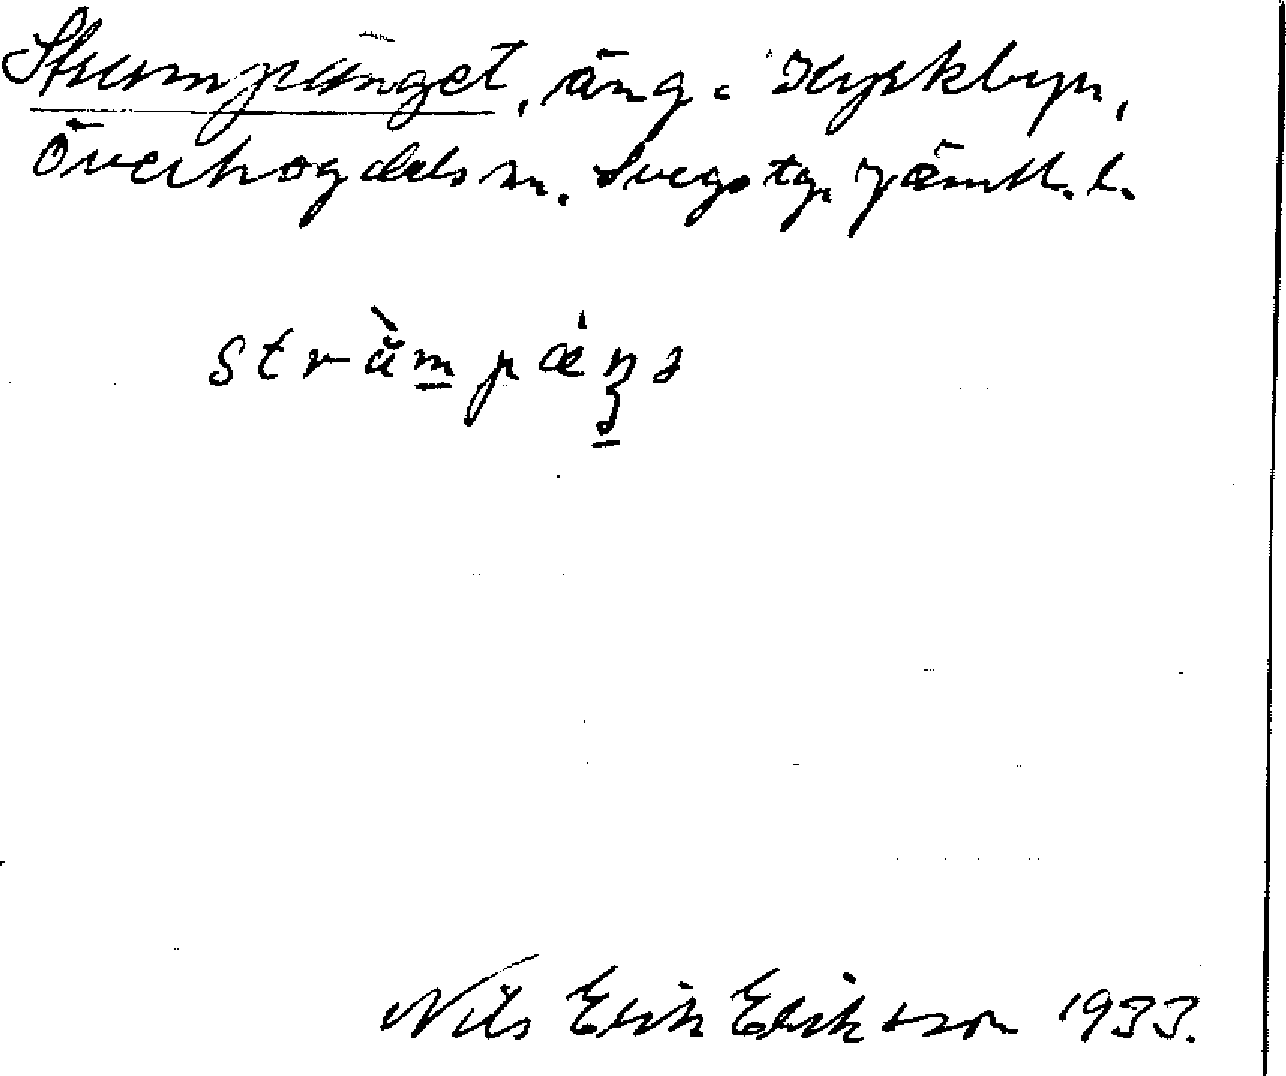 Strumpänget, äng i Kyrkbyn,
Överhogdals sn. Svegs tg. Jämtl. l.
strùmpǽŋə
Nils Erik Eriksson 1933.